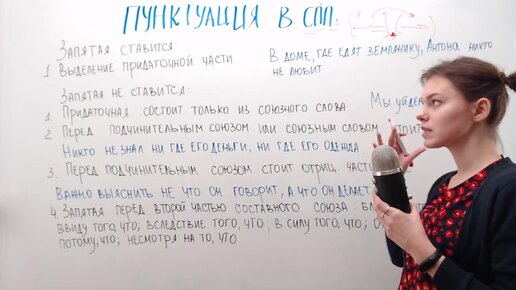 ПУНКТУАЦИЯ В СПП.
ЗАПЯТАЯ СТАВИТСЯ
1. ВЫДЕЛЕНИЕ ПРИДАТОЧНОЙ ЧАСТИ
В ДОМЕ, ГДЕ ЕДЯТ ЗЕМЛЯНИКУ, АНТОНА НИКТО
НЕ ЛЮБИТ
ЗАПЯТАЯ НЕ СТАВИТСЯ:
1. ПРИДАТОЧНАЯ СОСТОИТ ТОЛЬКО ИЗ СОЮЗНОГО СЛОВА
МЫ УЙДЁМ
2. ПЕРЕД ПОДЧИНИТЕЛЬНЫМ СОЮЗОМ ИЛИ СОЮЗНЫМ СЛОВОМ СТОИТ
НИКТО НЕ ЗНАЛ НИ ГДЕ ЕГО ДЕНЬГИ, НИ ГДЕ ЕГО ОДЕЖДА
3. ПЕРЕД ПОДЧИНИТЕЛЬНЫМ СОЮЗОМ СТОИТ ОТРИЦ. ЧАСТИ
ВАЖНО ВЫЯСНИТЬ НЕ ЧТО ОН ГОВОРИТ, А ЧТО ОН ДЕЛАЕТ
4. ЗАПЯТАЯ ПЕРЕД ВТОРОЙ ЧАСТЬЮ СОСТАВНОГО СОЮЗА:
ВВИДУ ТОГО, ЧТО; ВСЛЕДСТВИЕ ТОГО, ЧТО; В СИЛУ ТОГО, ЧТО;
ПОТОМУ, ЧТО; НЕСМОТРЯ НА ТО, ЧТО